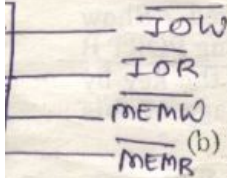 I̅O̅W̅
I̅O̅R̅
M̅E̅M̅W̅
M̅E̅M̅R̅ (b)